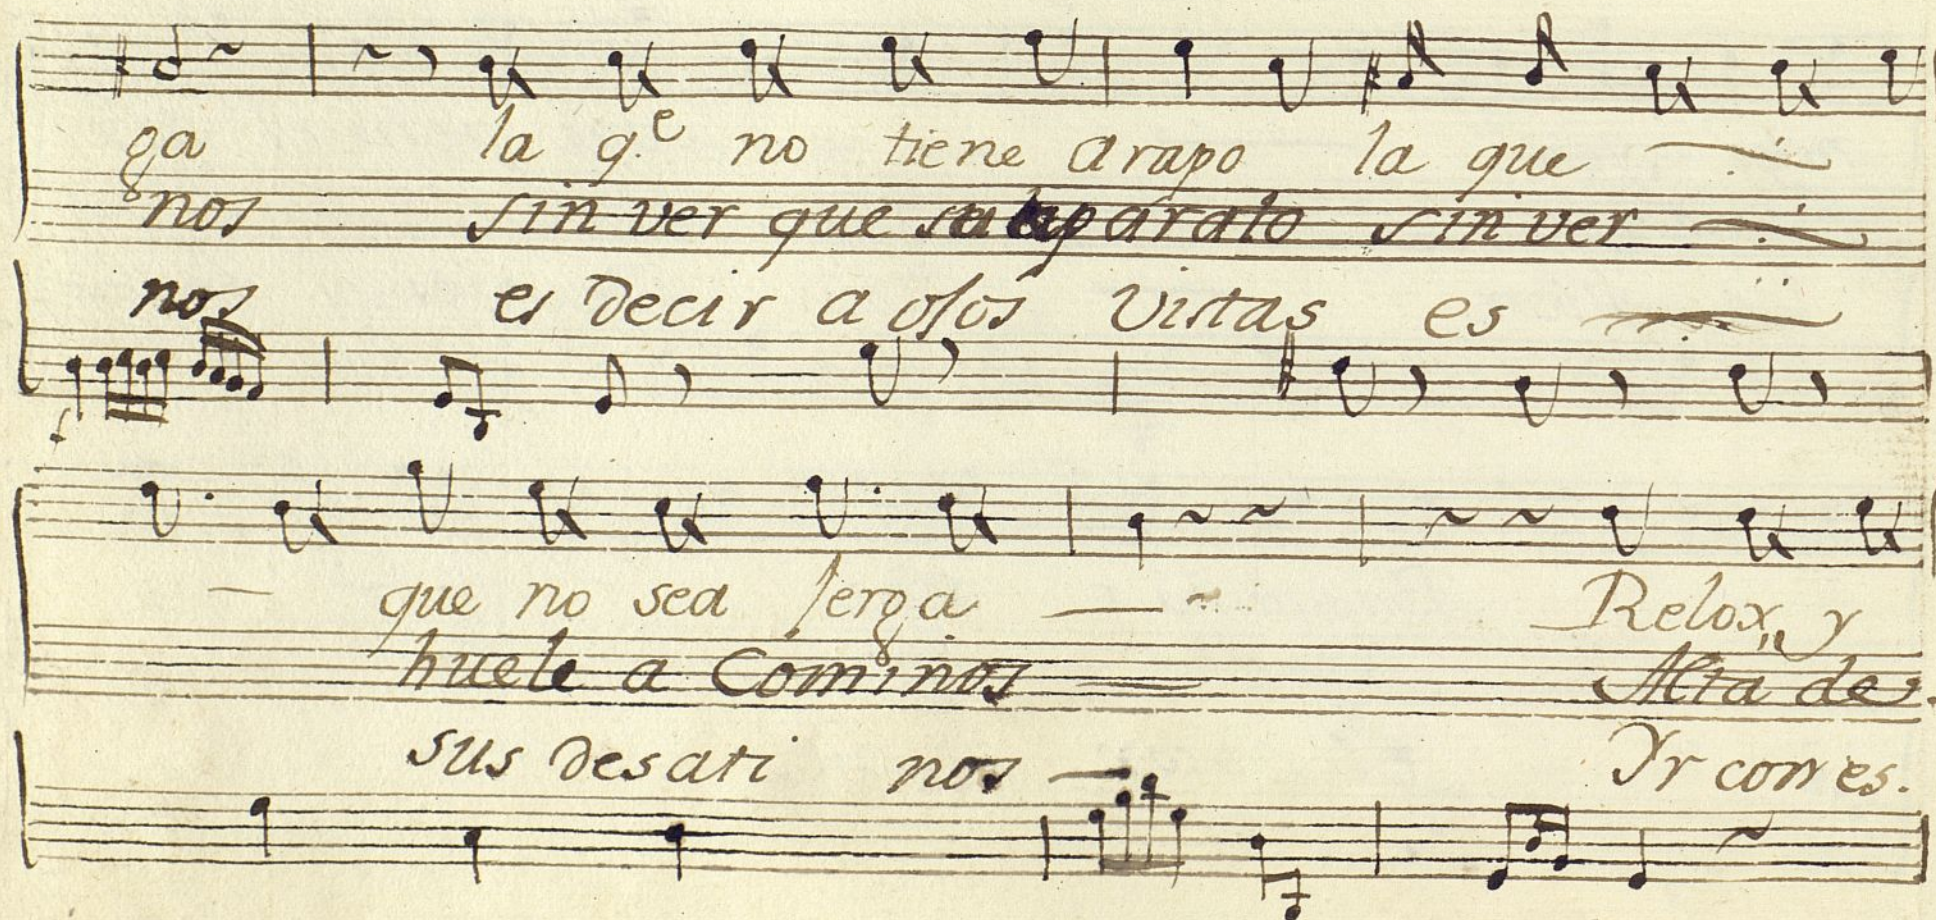 ga la q.e no tiene arapo la que
nos sin ver que aparato sin ver
nos es decir a ojos vistas es
que no sea jerga
huele a Cominos
sus desati nos
Relox, y
de
Yr con es.